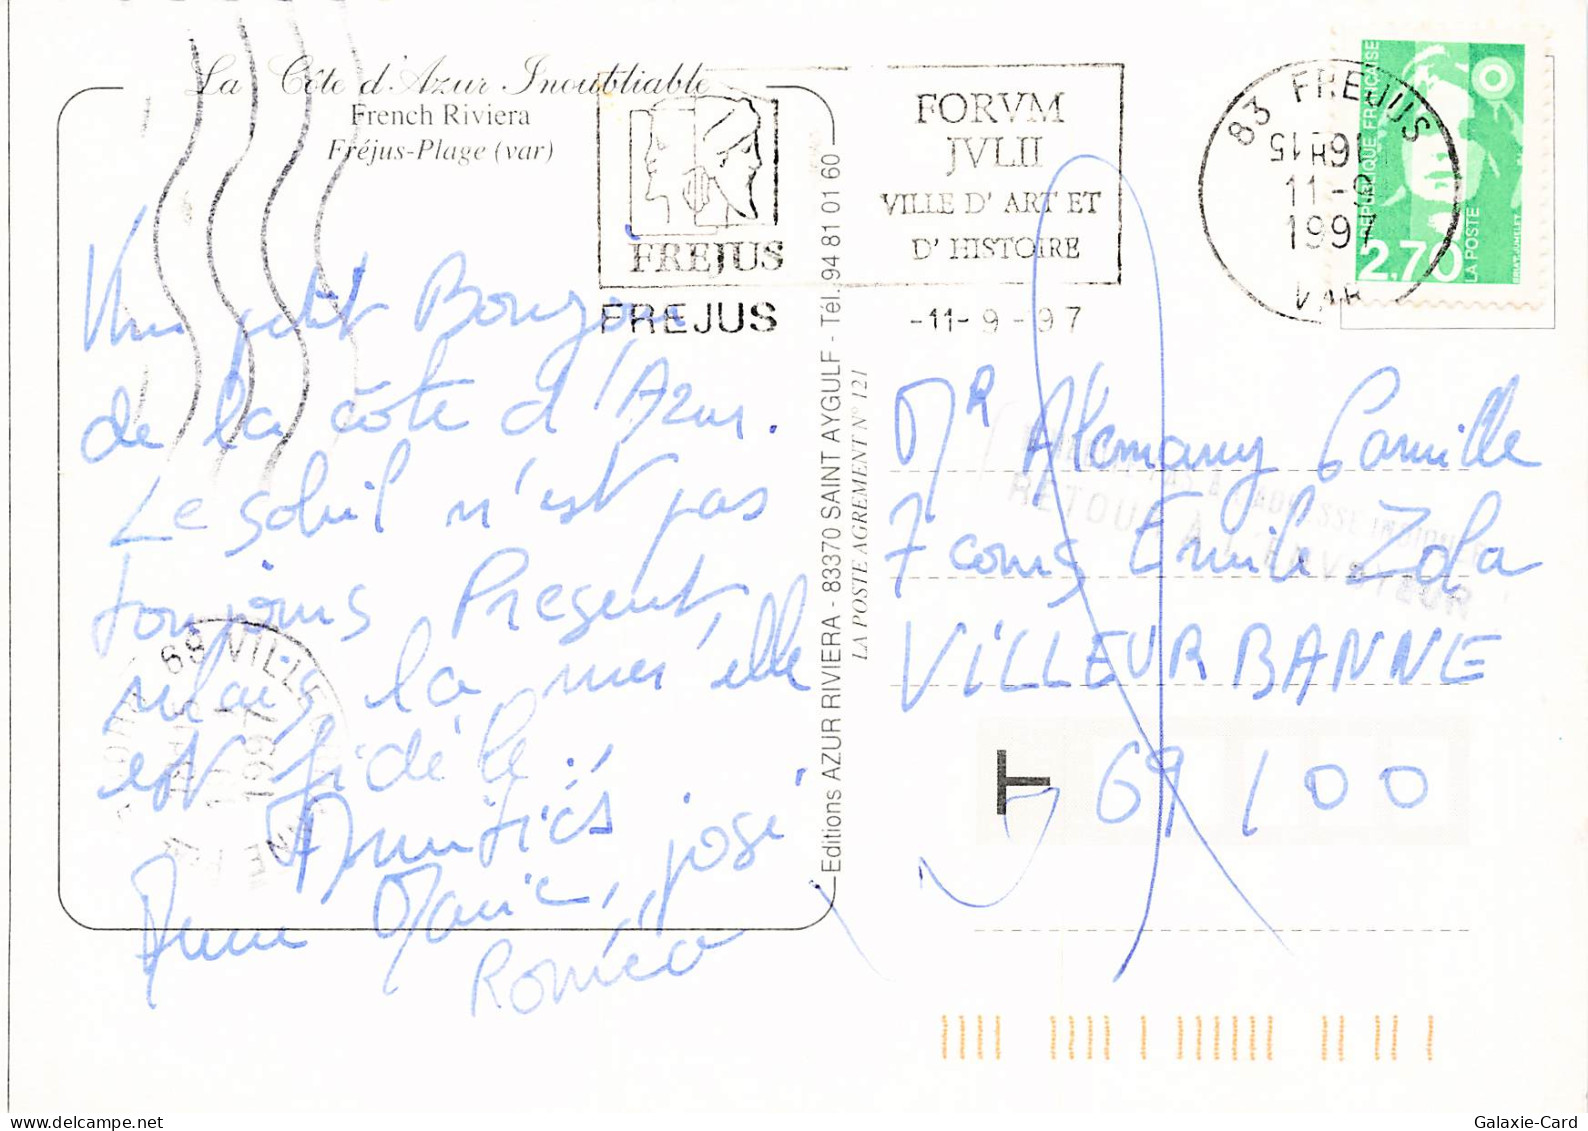 La Côte d'Azur Inoubliable
French Riviera
Fréjus-Plage (var)
FREJUS
FORVM
JVLII
VILLE D' ART ET
D' HISTOIRE
FREJUS
-11- 9 - 97
83 FREJUS
16H15
11-9
1997
VAR
REPUBLIQUE FRANÇAISE
2,70
LA POSTE
Un petit Bonjour
de la côte d'Azur.
Le soleil n'est pas
toujours Present,
mais la mer, elle
est fidéle.
Amitiés
Anne Marie, josé
Roméo
69 VILLEURBANNE
1997
Editions AZUR RIVIERA - 83370 SAINT AYGULF - Tél. 94 81 01 60
LA POSTE AGREMENT N° 121
Mr Alemany Camille
7 cours Emile Zola
VILLEURBANNE
69100
T
A L'ADRESSE INDIQUEE
RETOUR A L'ENVOYEUR
Galaxie-Card